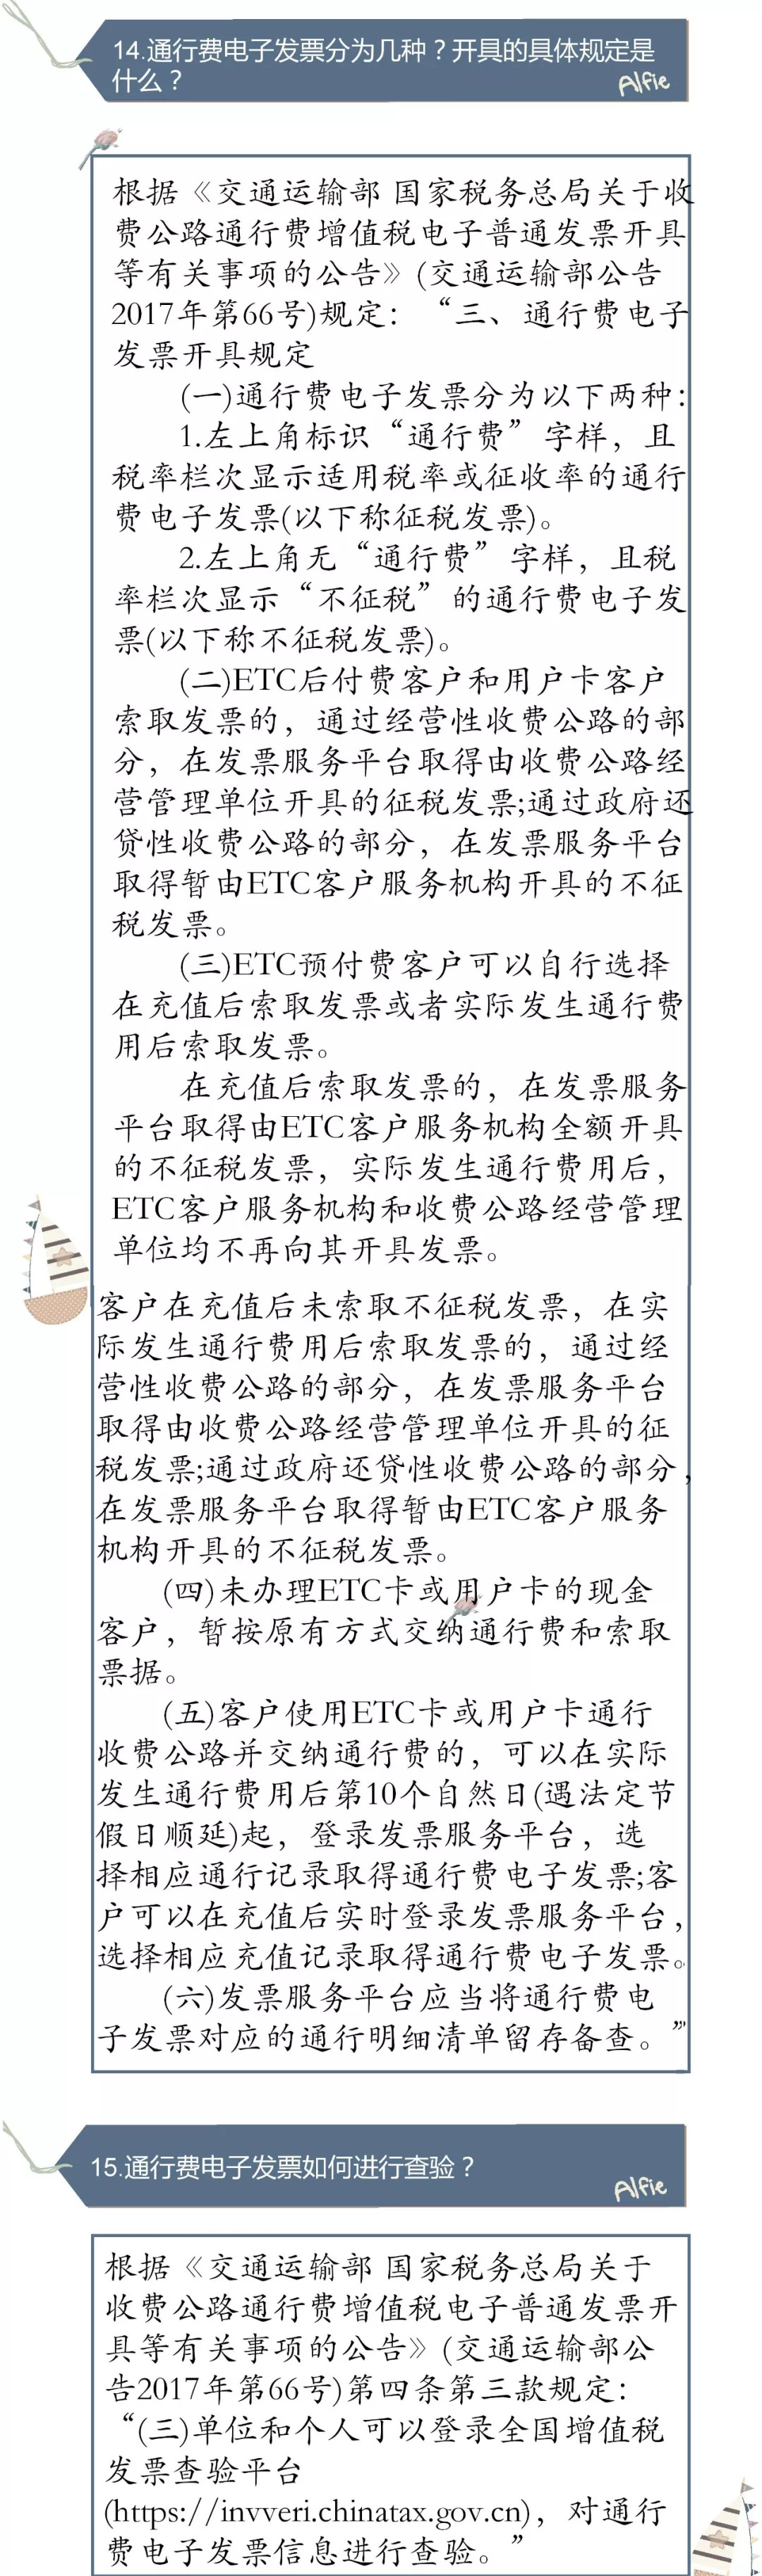 14.通行费电子发票分为几种？开具的具体规定是
什么？
Alfie
根据《交通运输部 国家税务总局关于收
费公路通行费增值税电子普通发票开具
等有关事项的公告》(交通运输部公告
2017年第66号)规定：“三、通行费电子
发票开具规定
(一)通行费电子发票分为以下两种：
1.左上角标识“通行费”字样，且
税率栏次显示适用税率或征收率的通行
费电子发票(以下称征税发票)。
2.左上角无“通行费”字样，且税
率栏次显示“不征税”的通行费电子发
票(以下称不征税发票)。
(二)ETC后付费客户和用户卡客户
索取发票的，通过经营性收费公路的部
分，在发票服务平台取得由收费公路经
营管理单位开具的征税发票;通过政府还
贷性收费公路的部分，在发票服务平台
取得暂由ETC客户服务机构开具的不征
税发票。
(三)ETC预付费客户可以自行选择
在充值后索取发票或者实际发生通行费
用后索取发票。
在充值后索取发票的，在发票服务
平台取得由ETC客户服务机构全额开具
的不征税发票，实际发生通行费用后，
ETC客户服务机构和收费公路经营管理
单位均不再向其开具发票。
客户在充值后未索取不征税发票，在实
际发生通行费用后索取发票的，通过经
营性收费公路的部分，在发票服务平台
取得由收费公路经营管理单位开具的征
税发票;通过政府还贷性收费公路的部分，
在发票服务平台取得暂由ETC客户服务
机构开具的不征税发票。
(四)未办理ETC卡或用户卡的现金
客户，暂按原有方式交纳通行费和索取
票据。
(五)客户使用ETC卡或用户卡通行
收费公路并交纳通行费的，可以在实际
发生通行费用后第10个自然日(遇法定节
假日顺延)起，登录发票服务平台，选
择相应通行记录取得通行费电子发票;客
户可以在充值后实时登录发票服务平台，
选择相应充值记录取得通行费电子发票。
(六)发票服务平台应当将通行费电
子发票对应的通行明细清单留存备查。”
15.通行费电子发票如何进行查验？
Alfie
根据《交通运输部 国家税务总局关于
收费公路通行费增值税电子普通发票开
具等有关事项的公告》(交通运输部公
告2017年第66号)第四条第三款规定：
“(三)单位和个人可以登录全国增值税
发票查验平台
(https://invveri.chinatax.gov.cn)，对通行
费电子发票信息进行查验。”